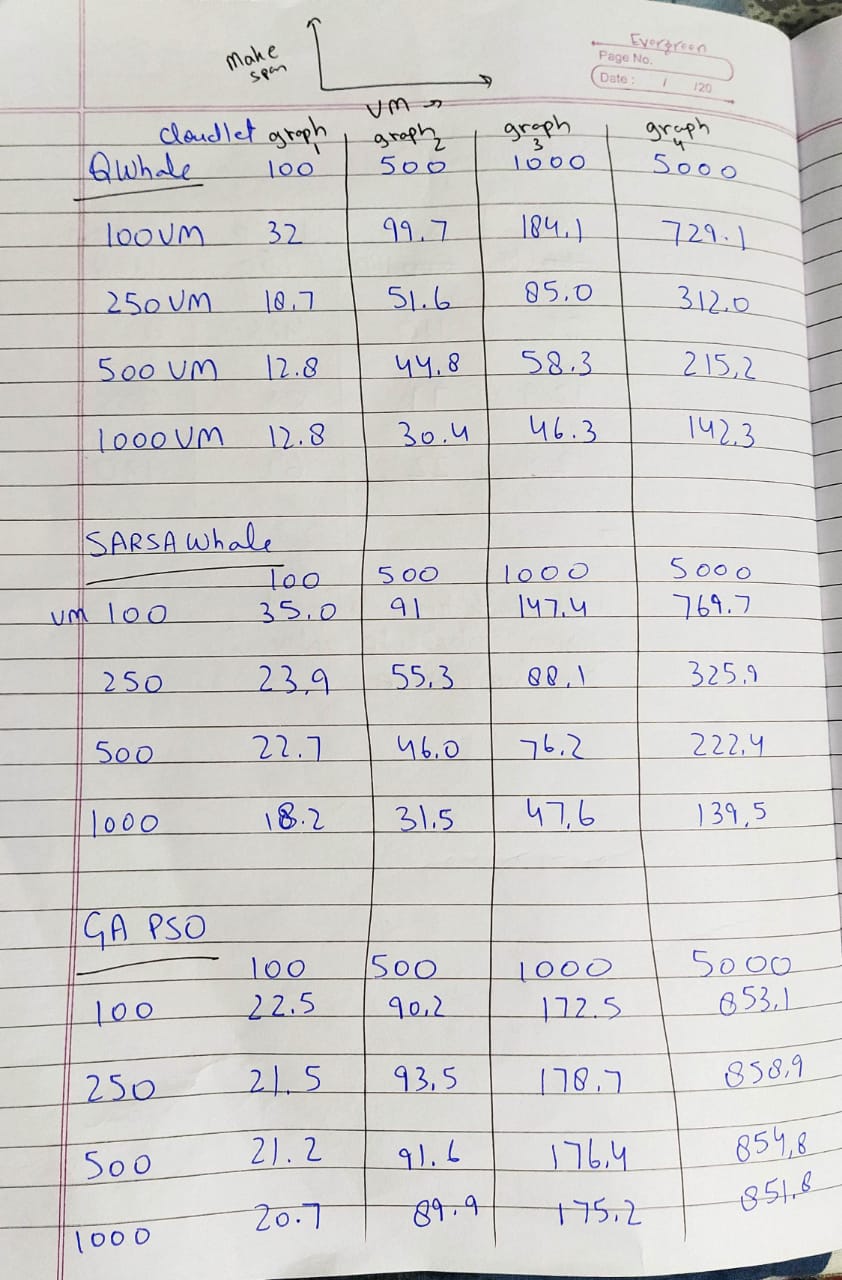 Evergreen
Page No.
Date : / /20
Make
span
VM →
cloudlet graph 1 graph 2 graph 3 graph 4
QWhale 100 500 1000 5000
100VM 32 99.7 184.1 729.1
250VM 18.7 51.6 85.0 312.0
500 VM 12.8 44.8 58.3 215.2
1000VM 12.8 30.4 46.3 142.3
SARSA Whale
100 500 1000 5000
VM 100 35.0 91 147.4 769.7
250 23.9 55.3 88.1 325.9
500 22.7 46.0 76.2 222.4
1000 18.2 31.5 47.6 139.5
GA PSO
100 500 1000 5000
100 22.5 90.2 172.5 853.1
250 21.5 93.5 178.7 858.9
500 21.2 91.6 176.4 854.8
1000 20.7 89.9 175.2 851.8